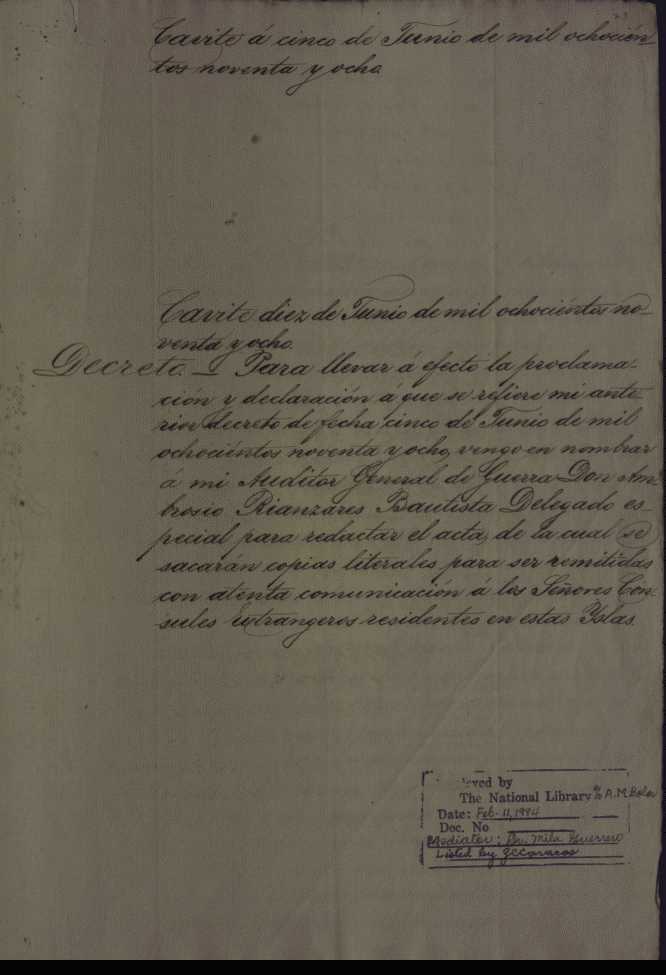 Cavite á cinco de Junio de mil ochocién-
tos noventa y ocho.
Cavite diez de Junio de mil ochociéntos no-
venta y ocho.
Decreto. — Para llevar á efecto la proclama-
ción y declaración á que se refiere mi ante-
rior decreto de fecha cinco de Junio de mil
ochociéntos noventa y ocho, vengo en nombrar
á mi Auditor General de Guerra Don Am-
brosio Rianzares Bautista Delegado es-
pecial para redactar el acta, de la cual se
sacarán copias literales para ser remitidas
con atenta comunicación á los Señores Cón-
sules extrangeros residentes en estas Yslas.
by
The National Library % A.M.
Date: Feb-11, 1994
Doc. No
Mediator: Dr. Mila Guerrero
Listed by